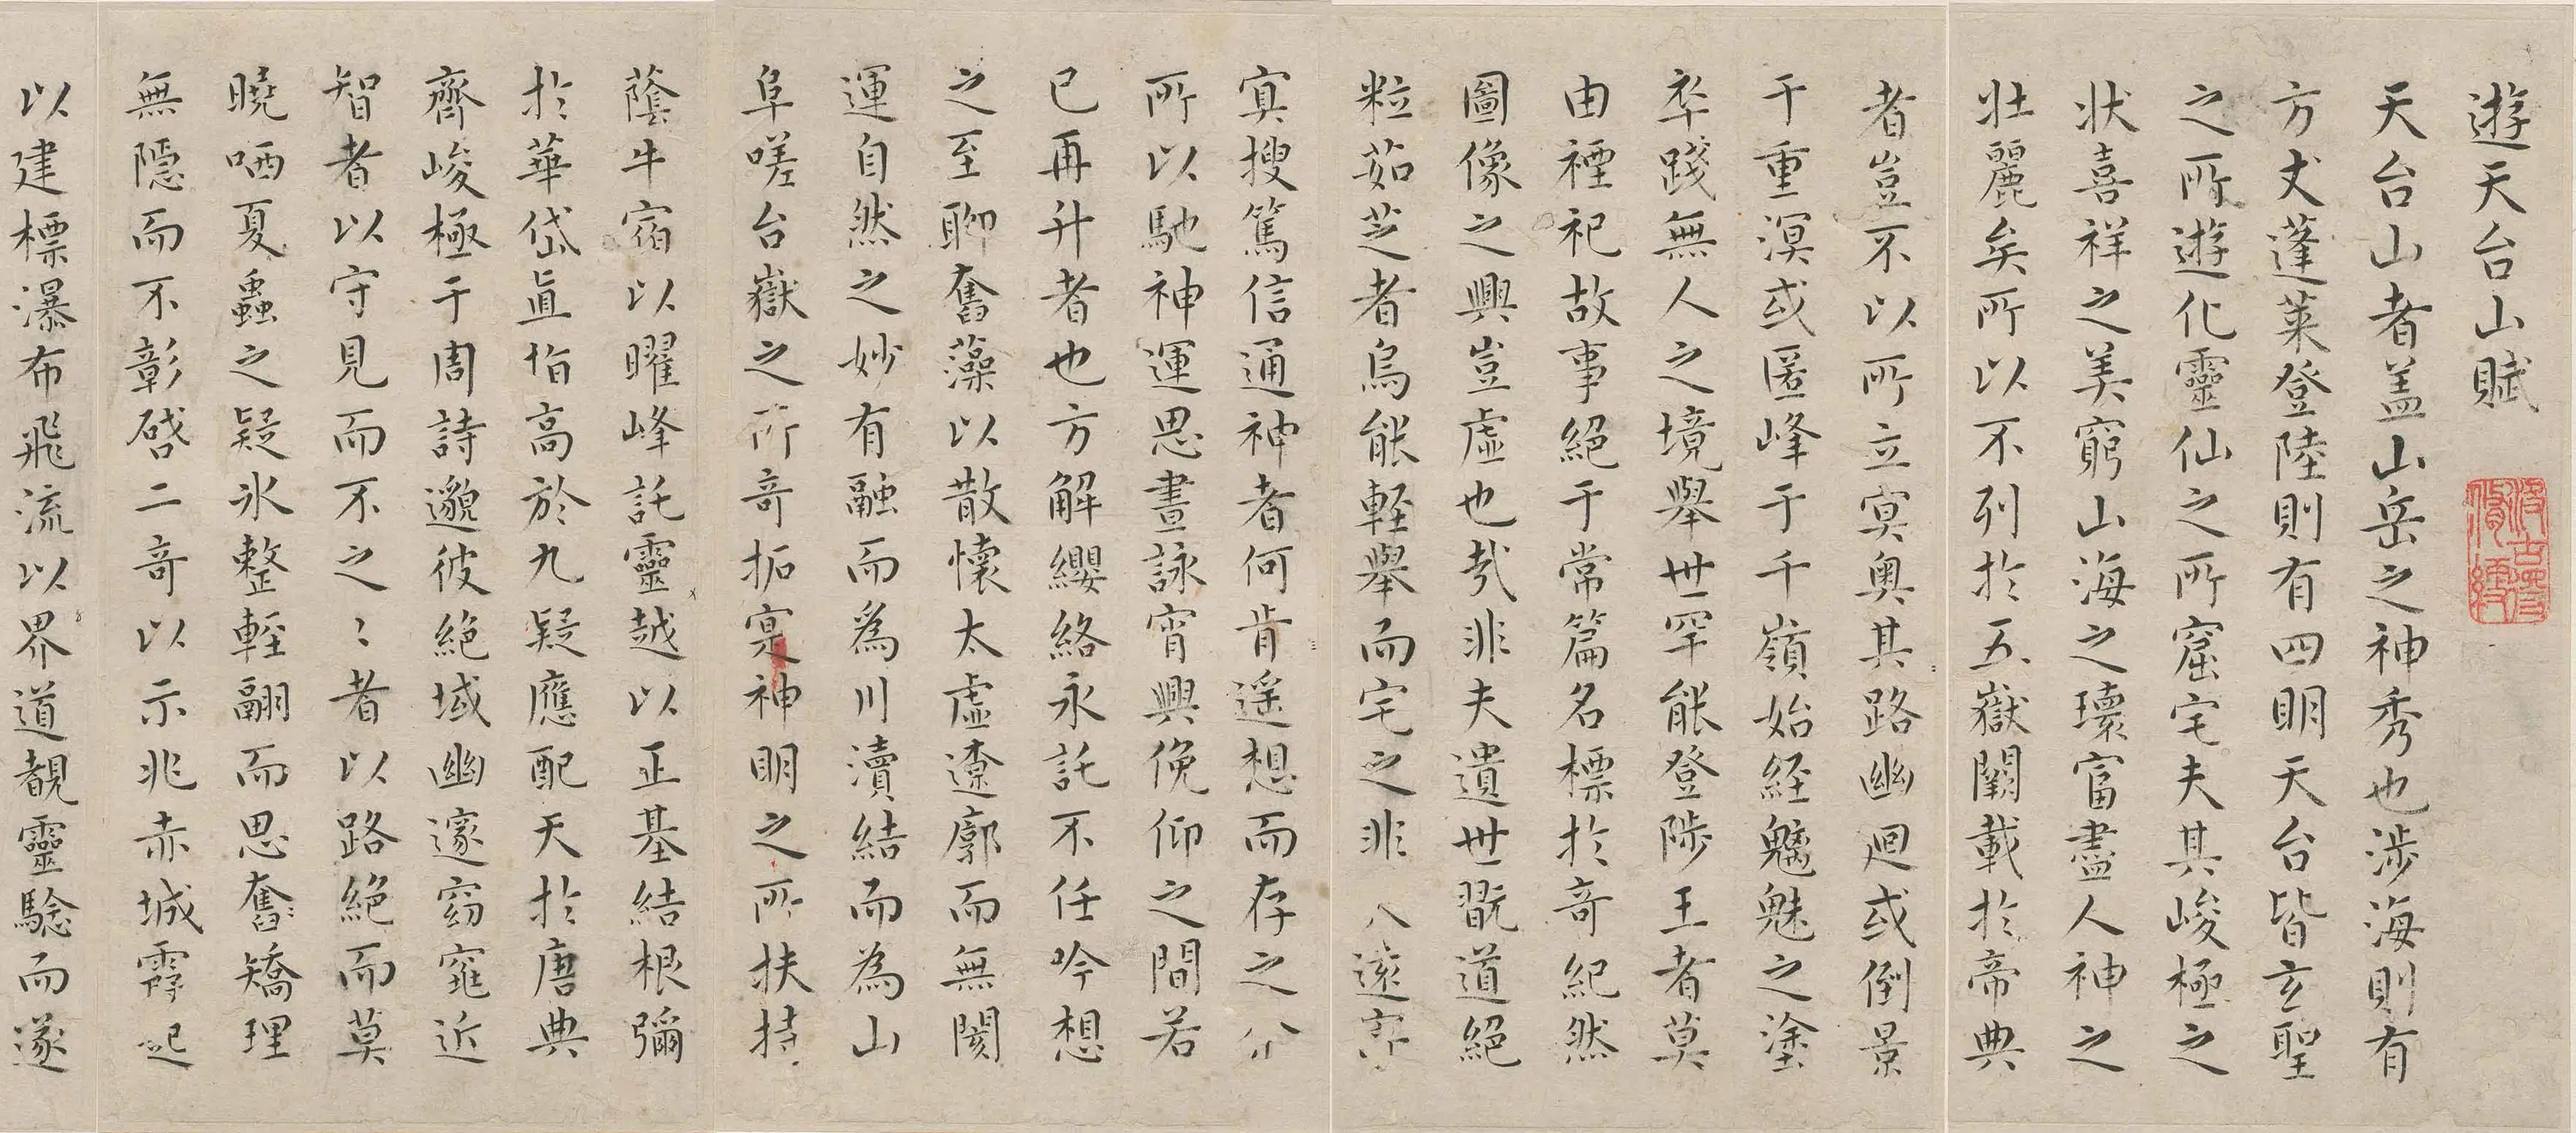 遊天台山賦
天台山者盖山岳之神秀也涉海則有
方丈蓬萊登陸則有四明天台皆玄聖
之所遊化靈仙之所窟宅夫其峻極之
狀喜祥之美窮山海之瓌富盡人神之
壯麗矣所以不列於五嶽闕載於帝典
者豈不以所立㝠奥其路幽迥或倒景
于重溟或匿峰于千嶺始経魑魅之塗
卒踐無人之境舉世罕能登陟王者莫
由禋祀故事絕于常篇名標於奇紀然
圖像之興豈虛也㢤非夫遺世翫道絕
粒茹芝者烏能軽舉而宅之非遠
㝠搜篤信通神者何肯遥想而存之
所以馳神運思晝詠宵興俛仰之間若
已再升者也方解纓絡永託不任吟想
之至聊奮藻以散懷太虛遼廓而無閡
運自然之妙有融而爲川瀆結而為山
阜嗟台嶽之所奇挺寔神明之所扶持
蔭牛宿以曜峰託靈越以正基結根彌
於華岱直指高於九疑應配天於唐典
齊峻極于周詩邈彼絕域幽邃窈窕近
智者以守見而不之〻者以路絕而莫
曉哂夏蟲之疑氷整輕翮而思奮矯理
無隱而不彰啓二奇以示兆赤城霞起
以建標瀑布飛流以界道覩靈驗而遂